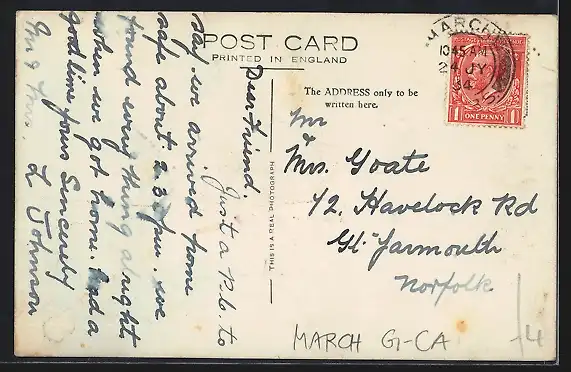 POST CARD
PRINTED IN ENGLAND
The ADDRESS only to be
written here.
THIS IS A REAL PHOTOGRAPH
Dear Friend.
Just a P.C. to
say we arrived home
safe about 2.30 pm. we
found everything alright
when we got home. Had a
good time yours Sincerely
L Johnson
MARCH
10 45 AM
24 JY
34
POSTAGE
REVENUE
1 ONE PENNY 1
Mr
&
Mrs. Goate
12. Havelock Rd
Gt. Yarmouth
Norfolk
MARCH G-CA